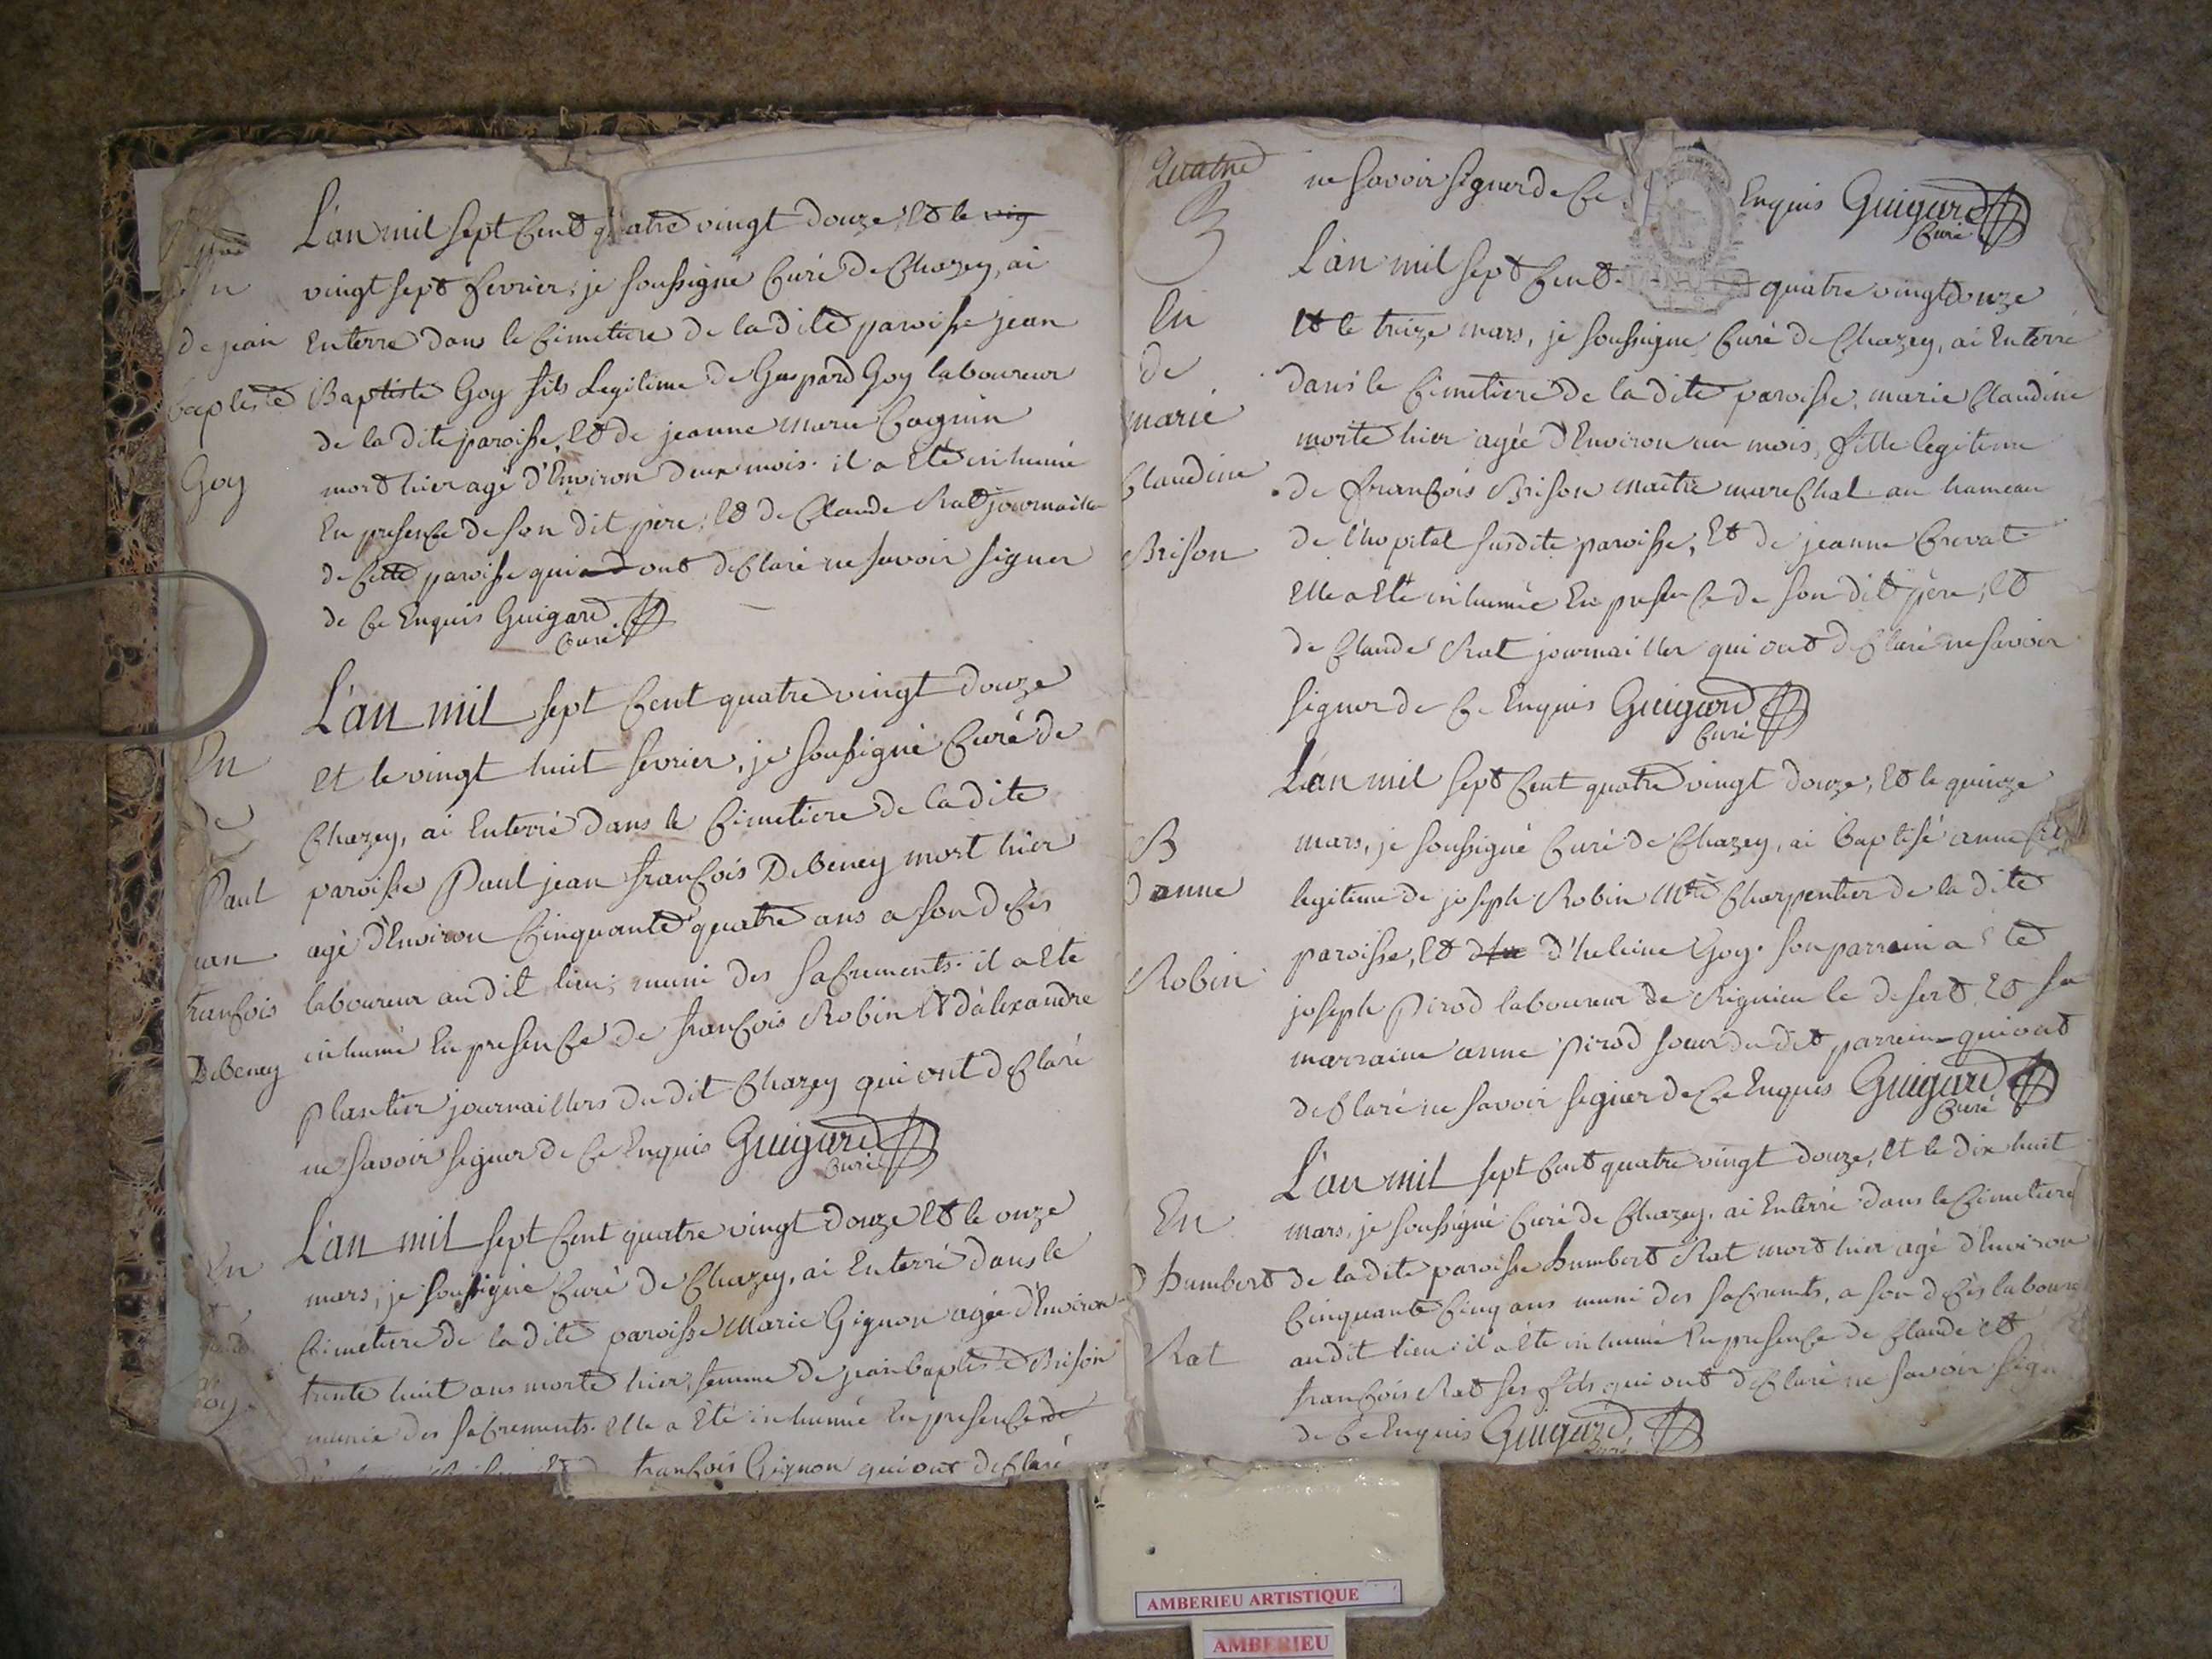 L'an mil sept Cent quatre vingt douze, Et le vig
vingt sept fevrier, je soussigné Curé de Chazey, ai
Enterré dans le Cimetiere de la dite paroisse jean
Baptiste Goy fils Legitime de Gaspard Goy laboureur
de la dite paroisse, Et de jeanne marie Cagnin
mort hier agé d'Environ deux mois. il a Eté inhumé
En presence de son dit père, Et de Claude Rat journailler
de Cette paroisse qui ont declaré ne savoir signer
de Ce Enquis Guigard
Curé
En
de jean
baptiste
Goy
L'an mil sept Cent quatre vingt douze
et le vingt huit fevrier, je soussigné Curé de
Chazey, ai Enterré dans le Cimetiere de la dite
paroisse Paul jean françois Debeney mort hier
agé d'Environ Cinquante quatre ans a son deCès
laboureur audit lieu, muni des saCrements. il a Eté
inhumé En presenCe de françois Robin Et d'alexandre
Plantier journailliers du dit Chazey qui ont deClaré
ne savoir signer de Ce Enquis Guigard
Curé
En
de
Paul
jean
françois
Debeney
L'an mil sept Cent quatre vingt douze Et le onze
mars, je soussigné Curé de Chazey, ai Enterré dans le
Cimetiere de la dite paroisse Marie Gignon agée d'Environ
trente huit ans morte hier, femme de jean baptiste Brison
munie des saCrements. Elle a Eté inhumée En presenCe de
françois Gignon qui ont deClaré
En
Quatre
ne savoir signer de Ce Enquis Guigard
Curé
L'an mil sept Cent quatre vingt douze
Et le treize mars, je soussigné Curé de Chazey, ai Enterré
dans le Cimetiere de la dite paroisse, marie Claudine
morte hier agée d'Environ un mois, fille legitime
de françois Brison maître mareChal au hameau
de l'hopital susdite paroisse, Et de jeanne Crevat.
Elle a Eté inhumée En presenCe de son dit père, Et
de Claude Rat journailler qui ont deClaré ne savoir
signer de Ce Enquis Guigard
Curé
En
de
marie
Claudine
Brison
L'an mil sept Cent quatre vingt douze, Et le quinze
mars, je soussigné Curé de Chazey, ai baptisé anne
legitime de joseph Robin Mtre Charpentier de la dite
paroisse, Et d'heleine Goy. son parrain a Eté
joseph Pirod laboureur de Rignieu le desert Et sa
marraine anne Pirod soeur du dit parrein qui ont
deClaré ne savoir signer de Ce Enquis Guigard
Curé
B
d anne
Robin
L'an mil sept Cent quatre vingt douze, Et le dix huit
mars, je soussigné Curé de Chazey, ai Enterré dans le Cimetiere
de la dite paroisse humbert Rat mort hier agé d'Environ
Cinquante Cinq ans muni des saCrements, a son deCès labour
audit lieu. il a Eté inhumé En presenCe de Claude Et
françois Rat ses fils qui ont deClaré ne savoir sign
de Ce Enquis Guigard
En
d humbert
Rat
AMBERIEU ARTISTIQUE
AMBERIEU